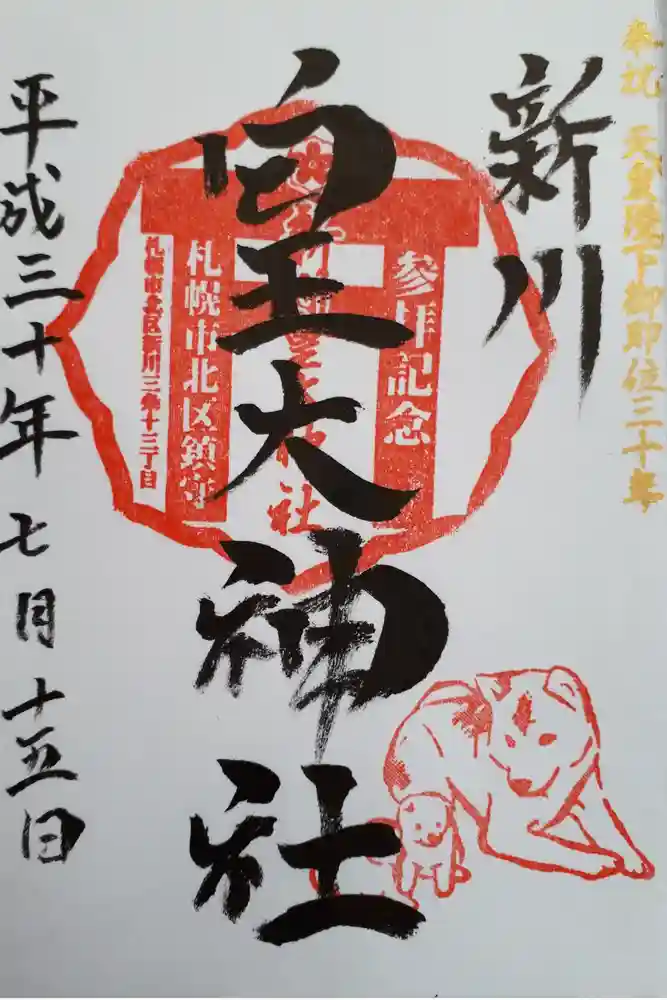 奉祝 天皇陛下御即位三十年
新川
皇大神社
参拝記念
札幌市北区鎮守
札幌市北区新川三条十三丁目
平成三十年七月十五日